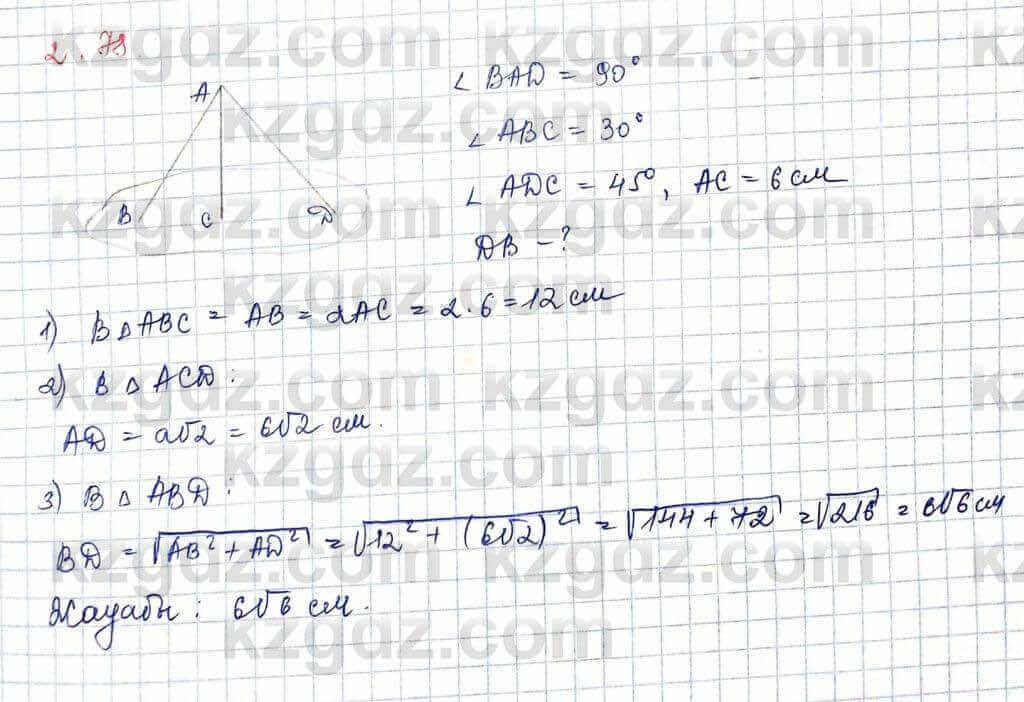 2.78
A
B
C
D
∠ BAD = 90°
∠ ABC = 30°
∠ ADC = 45°, AC = 6 см
DB - ?
1) В △ ABC = AB = 2AC = 2·6 = 12 см
2) В △ ACD:
AD = a√2 = 6√2 см.
3) В △ ABD:
BD = √AB² + AD² = √12² + (6√2)² = √144 + 72 = √216 = 6√6 см
Жауабы: 6√6 см.
kzgdz.com